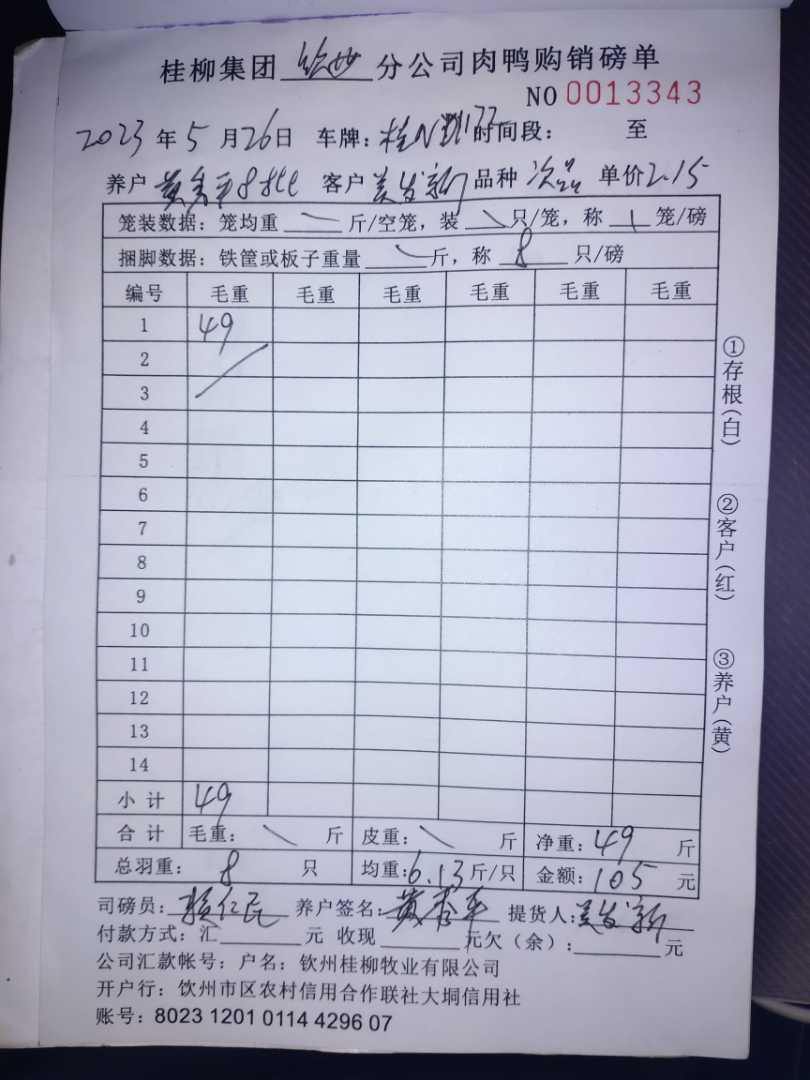 桂柳集团 分公司肉鸭购销磅单
NO 0013343
2023 年 5 月 26 日 车牌：桂N 时间段： 至
养户 黄秀平 8批 客户 姜发新 品种 次品 单价 2.15
笼装数据：笼均重 斤/空笼，装 只/笼，称 笼/磅
捆脚数据：铁筐或板子重量 斤，称 8 只/磅
编号 毛重 毛重 毛重 毛重 毛重 毛重
1 49
2
3
4
5
6
7
8
9
10
11
12
13
14
小计 49
合计 毛重： 斤 皮重： 斤 净重：49 斤
总羽重： 8 只 均重：6.13 斤/只 金额：105 元
司磅员： 养户签名：黄秀平 提货人：姜发新
付款方式：汇 元 收现 元欠（余）： 元
公司汇款帐号：户名：钦州桂柳牧业有限公司
开户行：饮州市区农村信用合作联社大垌信用社
账号：8023 1201 0114 4296 07
①存根（白）
②客户（红）
③养户（黄）